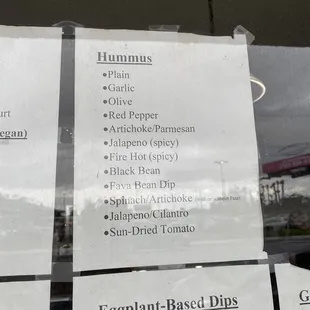 Hummus
•Plain
•Garlic
•Olive
•Red Pepper
•Artichoke/Parmesan
•Jalapeno (spicy)
•Fire Hot (spicy)
•Black Bean
•Fava Bean Dip
•Spinach/Artichoke
•Jalapeño/Cilantro
•Sun-Dried Tomato
Eggplant-Based Dips